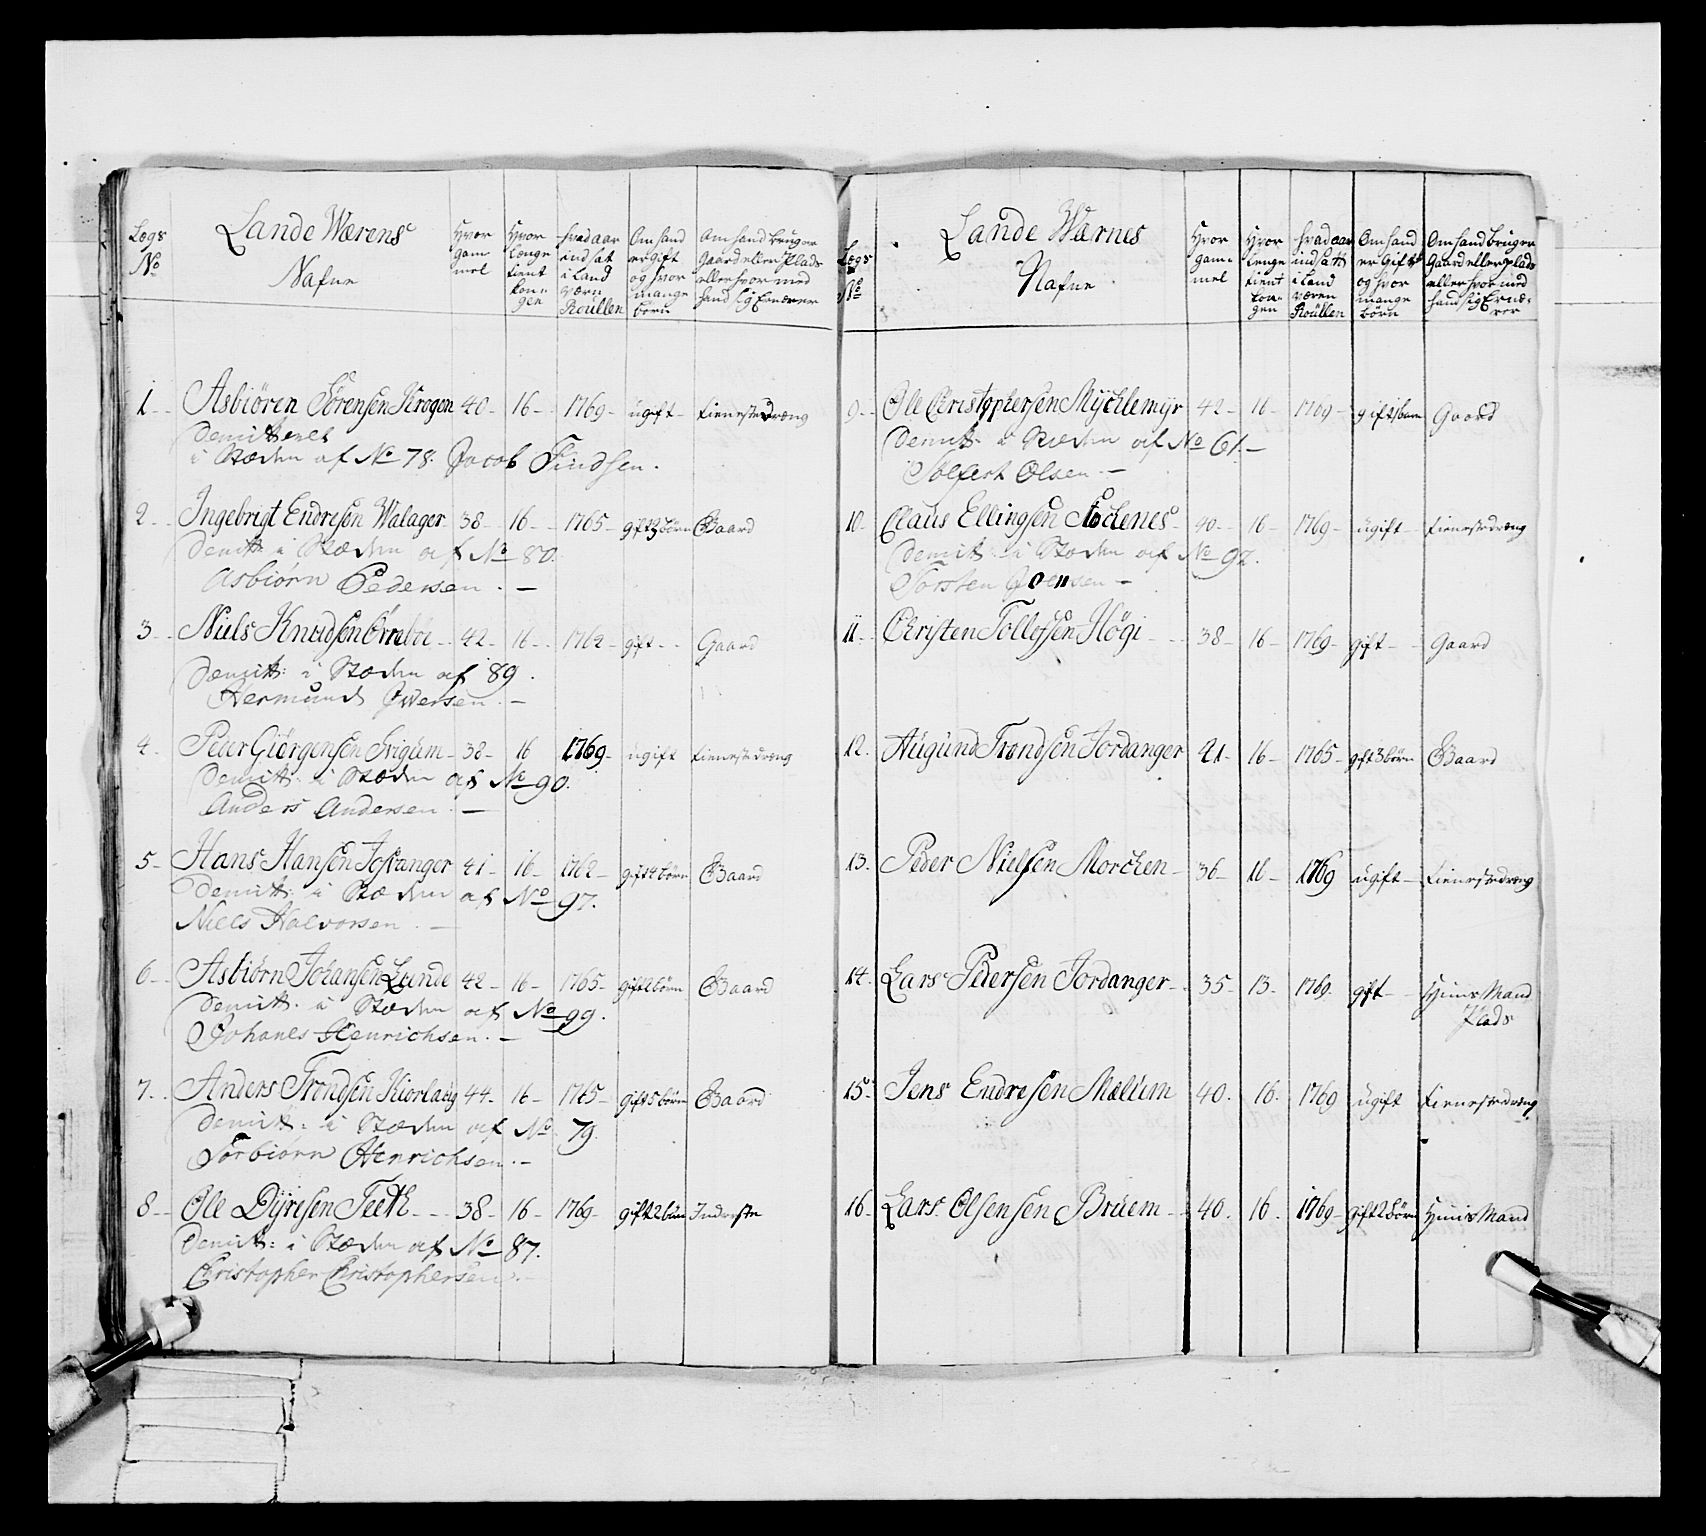 Legs No
Lande Wærens Nafne
Hvor gam mel
Hvor lenge tient kon= gen
hvad aar indsat i Land værn Roullen
Om hand er gift og hvor mange børn
Om hand bruger Gaard eller Plads eller hvor med hand sig Ernærer
1 Asbiören Sörensen Krogen 40 16 1769 ugift tienestedræng
Demitteret
i Stæden af No 78. Jacob Findsen.
2 Ingebrigt Endresen Walager 38 16 1765 gift 3 börn Gaard
Demitt: i Stæden af No 80.
Asbiørn Pedersen. –
3 Niels Knudsen 42 16 1762 gift Gaard
Demitt: i Stæden af 89.
Hermund Iversen. –
4 Peder Giörgensen Frigum 38 16 1769 ugift tienestedræng
Demitt: i Stæden af No 90.
Anders Andersen. –
5 Hans Hansen Jostanger 41 16 1762 gift 4 börn Gaard
Demitt: i Stæden af No 97.
Niels Halvorsen. –
6 Asbiørn Johansen Lunde 42 16 1765 gift 2 börn Gaard
Demitt: i Stæden af No 99.
Johanes Henrichsen. –
7 Anders Trondsen 44 16 1765 gift 5 börn Gaard
Demitt: i Stæden af No 79.
Torbiørn Henrichsen. –
8 Ole Dÿresen Teeth 38 16 1769 gift 2 börn Inderste
Demitt: i Stæden af No 87.
Christopher Christophersen. –
Legs No
Lande Wærnes Nafne
Hvor gam= mel
Hvor lenge tient kon= gen
hvad aar indsatt i Land væren Roullen
Om hand er Gift og hvor mange børn
Om hand bruger Gaard eller plads eller hvor med hand sig Ernæ= rer
9 Ole Christophersen Mÿchlemÿr 42 16 1769 gift 1 barn Gaard
Demitt: i Stæden af No 61. –
Solfest Olsen. –
10 Claus Ellingsen 40 16 1769 ugift tienestedræng
Demitt: i Stæden af No 92.
Torsten Joensen –
11 Christen Tollefsen Högi 38 16 1769 gift Gaard
12 Augund Trondsen Jordanger 41 16 1765 gift 3 börn Gaard
13 Peder Nielsen Morchen 36 16 1769 ugift tienestedræng
14 Lars Pedersen Jordanger 35 13 1769 gift Huus Mand Plads
15 Jens Endresen Mælum 40 16 1769 ugift tienestedræng
16 Lars Olsensen Bruem 40 16 1769 gift 2 börn Huus Mand